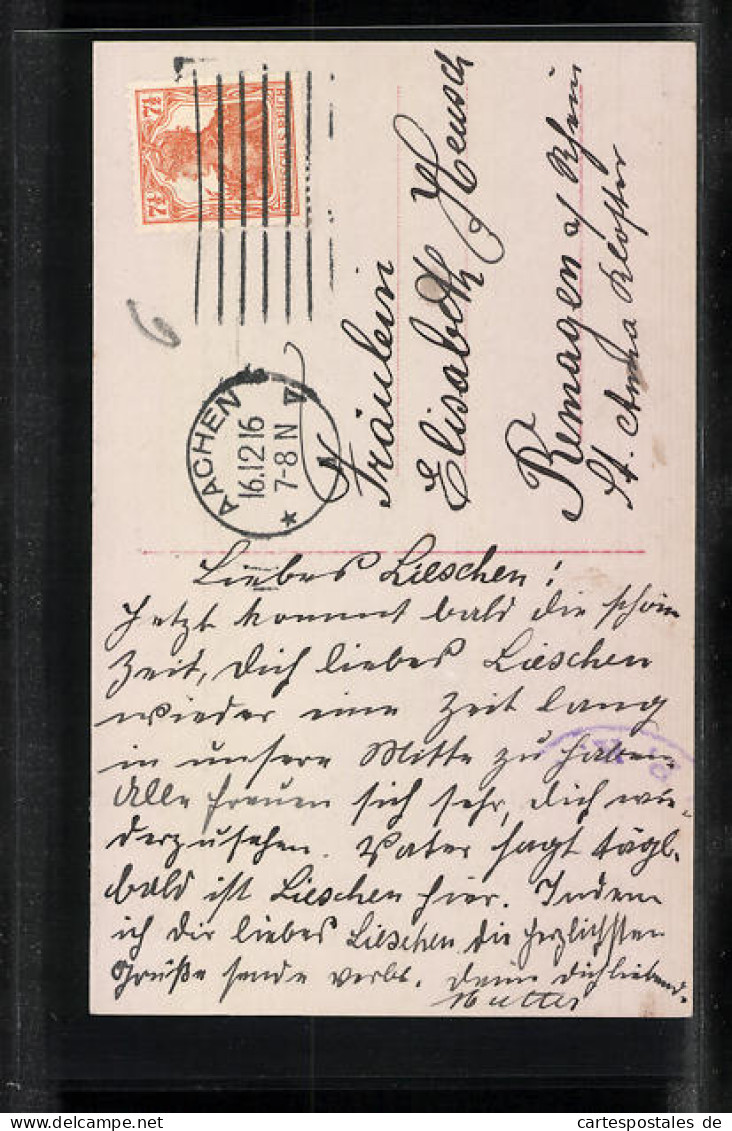 7½ 7½
DEUTSCHES REICH
AACHEN
16.12.16
7-8 N
V
Fräulein
Elisabeth Heusch
Remagen a/ Rhein
St. Anna Kloster
6
Liebes Lieschen!
Jetzt kommt bald die schöne
Zeit, dich liebes Lieschen
wieder eine Zeit lang
in unsere Mitte zu haben.
Alle freuen sich sehr, dich wie-
derzusehen. Vater sagt tägl.
bald ist Lieschen hier. Indem
ich dir liebes Lieschen die herzlichsten
Grüße sende verbl. deine dich liebend.
Mutter
cartespostales de